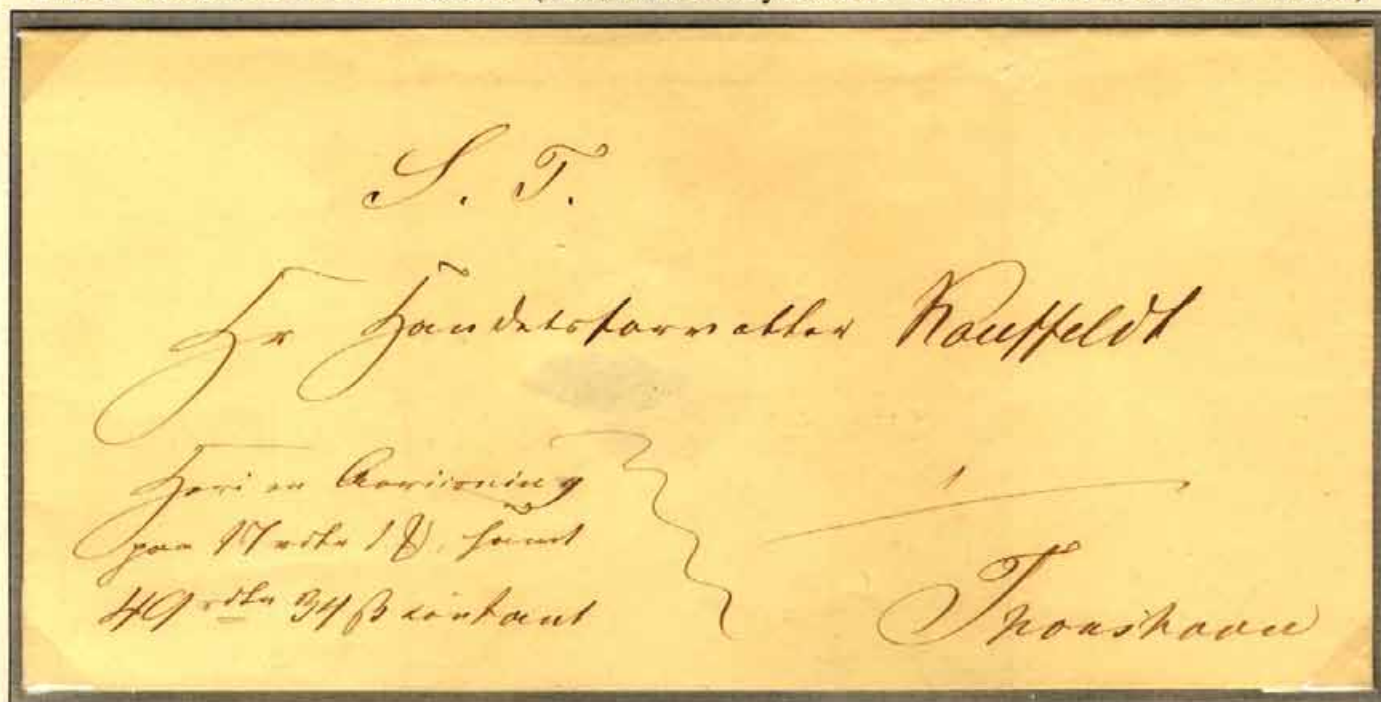 S. T.
Hr Handelsforvalter Kauffeldt
Heri en Anviisning
paa 17 rdlr 1 ß, samt
49 rdlr 34 ß contant
Thorshavn